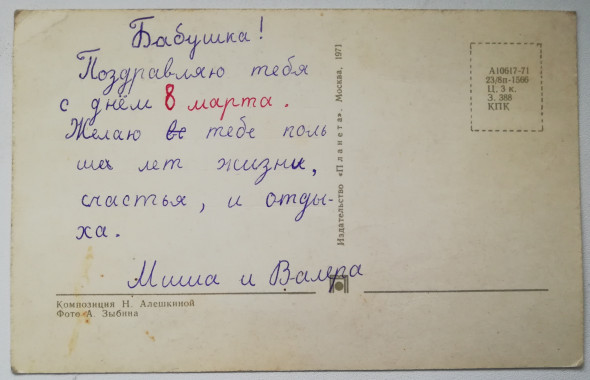 Бабушка!
Поздравляю тебя
с днём 8 марта.
Желаю тебе поль
ших лет жизни,
счастья, и отды-
ха.
Миша и Валера
Композиция Н. Алешкиной
Фото А. Зыбина
Издательство «Планета». Москва, 1971
А10617-71
23/8п-1566
Ц. 3 к.
З. 388
КПК